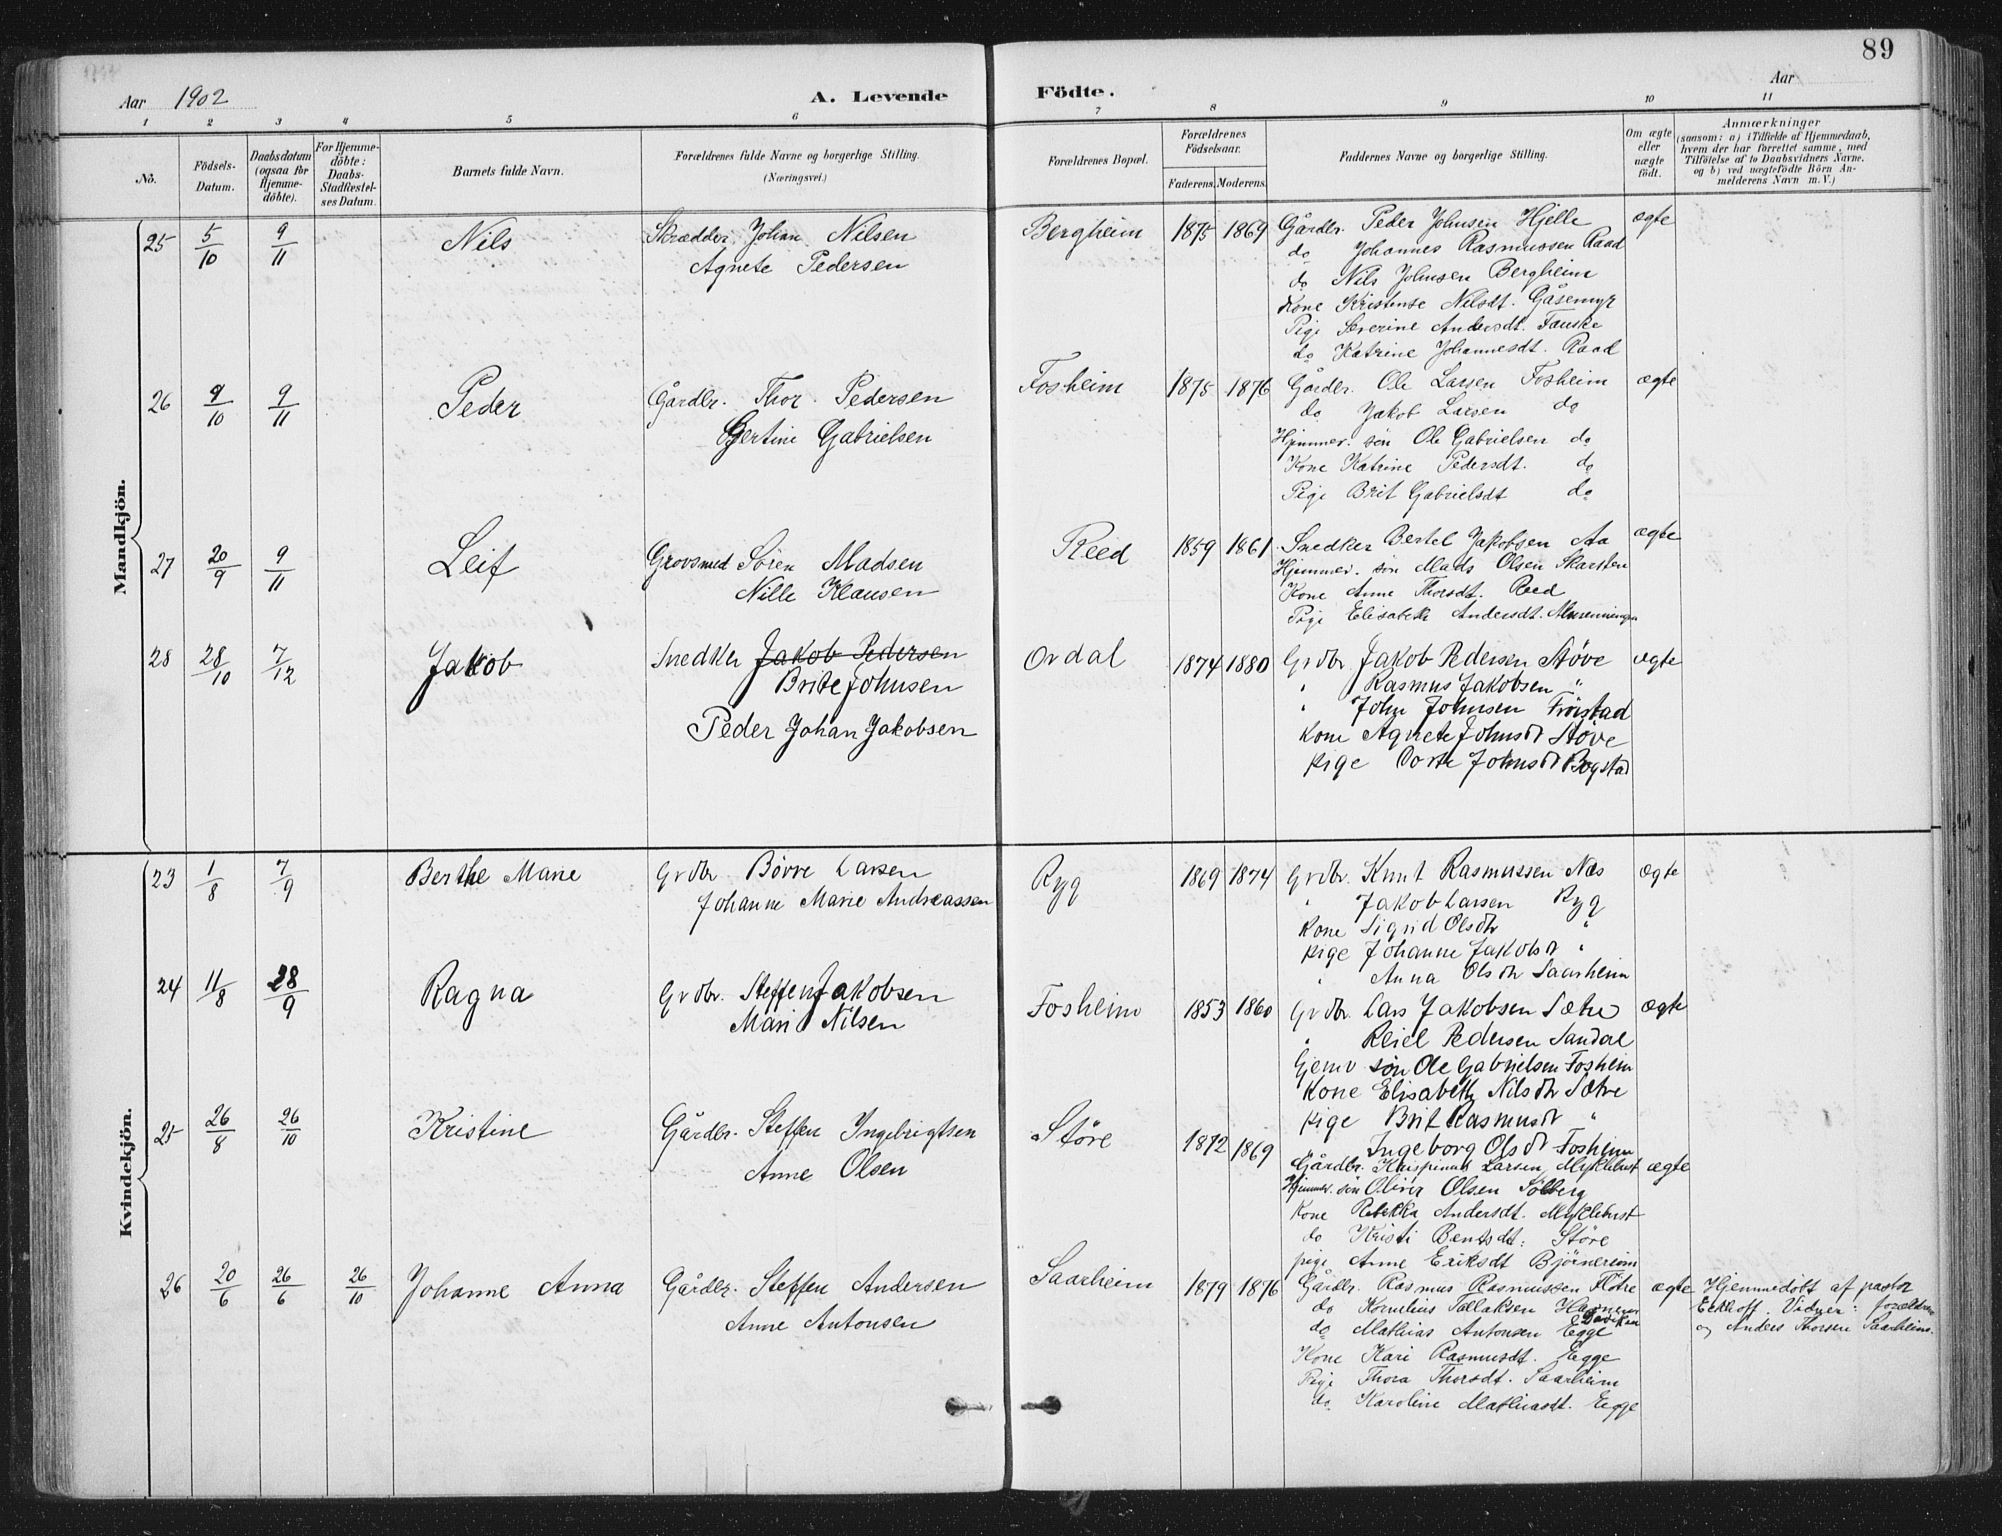 89
Aar 1902
A. Levende
Födte.
Aar
1 2 3 4 5 6 7 8 9 10 11
No.
Födsels-Datum.
Daabsdatum (ogsaa for Hjemme-döbte).
For Hjemme-döbte: Daabs-Stadfæstel-ses Datum.
Barnets fulde Navn.
Forældrenes fulde Navne og borgerlige Stilling. (Næringsvei.)
Forældrenes Bopæl.
Forældrenes Födselsaar.
Faderens. Moderens.
Faddernes Navne og borgerlige Stilling.
Om ægte eller uægte födt.
Anmærkninger
(saasom: a) i Tilfælde af Hjemmedaab, hvem der har forrettet samme, med Tilföielse af to Daabsvidners Navne. og b) ved uægtefödte Börn An-melderens Navn m. V.)
Mandkjön.
25 5/10 9/11 Nils Skrædder Johan Nilsen Bergheim 1875 1869 Gårdbr. Peder Johnsen Hjelle ægte
Agnete Pedersen do Johannes Rasmussen Raad
do Nils Johnsen Bergheim
Kone Kristense Nilsdt. Gåsemyr
Pige Severine Andersdt. Fauske
do Katrine Johannesdt. Raad
26 9/10 9/11 Peder Gårdbr. Thor Pedersen Fosheim 1875 1876 Gårdbr. Ole Larsen Fosheim ægte
Gjertine Gabrielsen do Jakob Larsen do
Hjemmev. sön Ole Gabrielsen do
Kone Katrine Pedersdt. do
Pige Brit Gabrielsdt do
27 20/9 9/11 Leif Grovsmed Sören Madsen Reed 1859 1861 Snedker Bertel Jakobsen Aa ægte
Nille Klausen Hjemmev. sön Mads Olsen Skarsten
Kone Anne Thorsdt. Reed
Pige Elisabeth Andersdt.
28 28/10 7/12 Jakob Snedker Jakob Pedersen Ordal 1874 1880 Grdbr. Jakob Pedersen Støve ægte
Brite Johnsen " Rasmus Jakobsen "
Peder Johan Jakobsen " John Johnsen Fröistad
Kone Agnete Johnsdt Støve
Pige Dorte Johnsdt Bogstad
Kvindekjön.
23 1/8 7/9 Berthe Marie Grdbr. Börre Larsen Ryg 1869 1874 Grdbr. Knut Rasmussen Næs ægte
Johanne Marie Andreassen " Jakob Larsen Ryg
Kone Sigrid Olsdtr "
Pige Johanne Jakobsdt "
" Anna Olsdtr Saarheim
24 11/8 28/9 Ragna Grdbr. Steffen Jakobsen Fosheim 1853 1860 Grdbr. Lars Jakobsen Sætre ægte
Mari Nilsen " Reiel Pedersen Sandal
Gjemv sön Ole Gabrielsen Fosheim
Kone Elisabeth Nilsdtr Sætre
Pige Brit Rasmusdt "
" Ingeborg Olsdt Fosheim
25 26/8 26/10 Kristine Gårdbr. Steffen Ingebrigtsen Støre 1872 1869 Gårdbr. Krispinus Larsen Myklebust ægte
Anne Olsen Hjemmev. sön Oliver Olsen Sølberg
Kone Rebekka Andersdt. Myklebust
do Kristi Bentsdt. Støre
pige Anne Eriksdt Bjørnereim
26 20/6 26/6 26/10 Johanne Anna Gårdbr. Steffen Andersen Saarheim 1879 1876 Gårdbr. Rasmus Rasmussen Flötre ægte Hjemmedöbt af pastor
Anne Antonsen do Kornelius Tollaksen Davikan Eckhoff. Vidner: forældrene
do Mathias Antonsen Egge og Anders Thorsen Saarheim.
Kone Kari Rasmusdt. Egge
Pige Thora Thorsdt. Saarheim
do Karoline Mathiasdt. Egge